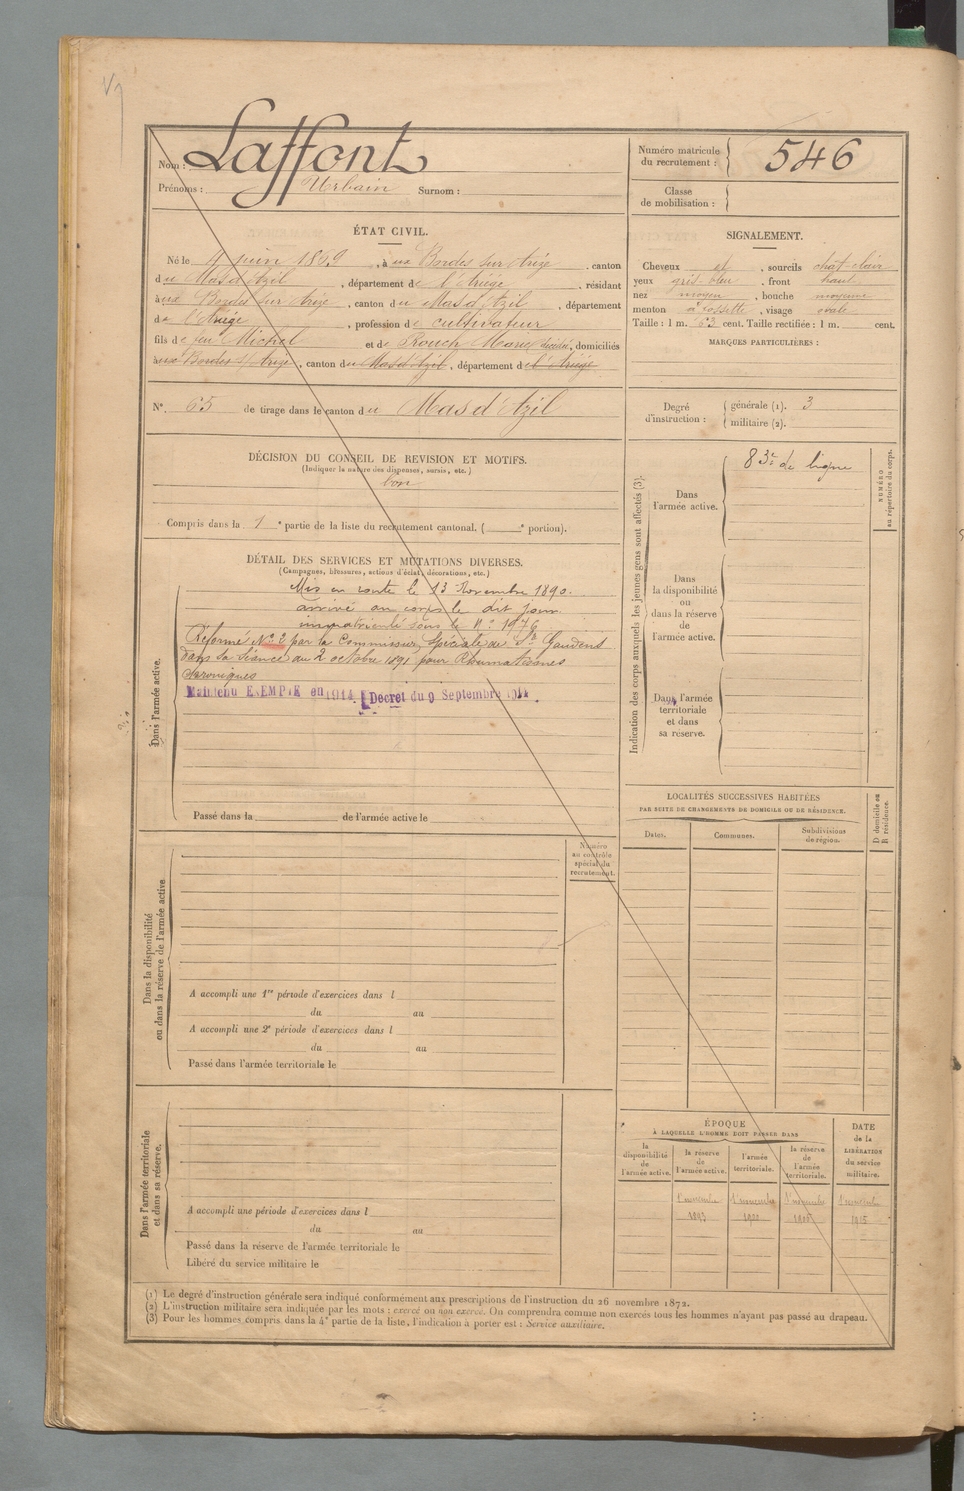 Nom : Laffont
Prénoms : Urbain Surnom :
Numéro matricule
du recrutement : 546
Classe
de mobilisation :
ÉTAT CIVIL.
Né le 4 juin 1869, à ux Bordes sur Arize, canton
du Mas d'Azil, département de l'Ariège, résidant
à ux Bordes sur Arize, canton du Mas d'Azil, département
de l'Ariège, profession de cultivateur
fils de feu Michel et de Rouch Marie décédée, domiciliés
à ux Bordes s/ Arize, canton du Mas d'Azil, département de l'Ariège
N° 65 de tirage dans le canton du Mas d'Azil
SIGNALEMENT.
Cheveux et, sourcils chat-clair
yeux gris-bleu, front haut
nez moyen, bouche moyenne
menton à fossette, visage ovale
Taille : 1 m. 63 cent. Taille rectifiée : 1 m. cent.
MARQUES PARTICULIÈRES :
Degré
d'instruction :
générale (1). 3
militaire (2).
DÉCISION DU CONSEIL DE REVISION ET MOTIFS.
(Indiquer la nature des dispenses, sursis, etc.)
bon
Compris dans la 1e partie de la liste du recrutement cantonal. ( e portion).
DÉTAIL DES SERVICES ET MUTATIONS DIVERSES.
(Campagnes, blessures, actions d'éclat, décorations, etc.)
Dans l'armée active.
Mis en route le 13 Novembre 1890.
arrivé au corps le dit jour
immatriculé sous le N° 1976
Réformé N° 2 par la Commission Spéciale de St Gaudens
dans sa séance du 2 octobre 1891 pour Rhumatismes
chroniques
Maintenu EXEMPTÉ en 1914 Décret du 9 Septembre 1914.
Passé dans la de l'armée active le
Indication des corps auxquels les jeunes gens sont affectés (3).
Dans
l'armée active.
83e de ligne
NUMÉRO
au répertoire du corps.
Dans
la disponibilité
ou
dans la réserve
de
l'armée active.
Dans l'armée
territoriale
et dans
sa réserve.
LOCALITÉS SUCCESSIVES HABITÉES
PAR SUITE DE CHANGEMENTS DE DOMICILE OU DE RÉSIDENCE.
Dates. Communes. Subdivisions
de région.
D domicile ou
R résidence.
Numéro
au contrôle
spécial du
recrutement.
Dans la disponibilité
ou dans la réserve de l'armée active
A accompli une 1re période d'exercices dans l
du au
A accompli une 2e période d'exercices dans l
du au
Passé dans l'armée territoriale le
Dans l'armée territoriale
et dans sa réserve.
A accompli une période d'exercices dans l
du au
Passé dans la réserve de l'armée territoriale le
Libéré du service militaire le
ÉPOQUE
À LAQUELLE L'HOMME DOIT PASSER DANS
la
disponibilité
de
l'armée active.
la réserve
de
l'armée active.
l'armée
territoriale.
la réserve
de
l'armée
territoriale.
DATE
de la
LIBÉRATION
du service
militaire.
1 novembre 1 novembre 1 novembre 1 novembre
1893 1915
(1) Le degré d'instruction générale sera indiqué conformément aux prescriptions de l'instruction du 26 novembre 1872.
(2) L'instruction militaire sera indiquée par les mots : exercé ou non exercé. On comprendra comme non exercés tous les hommes n'ayant pas passé au drapeau.
(3) Pour les hommes compris dans la 4e partie de la liste, l'indication à porter est : Service auxiliaire.